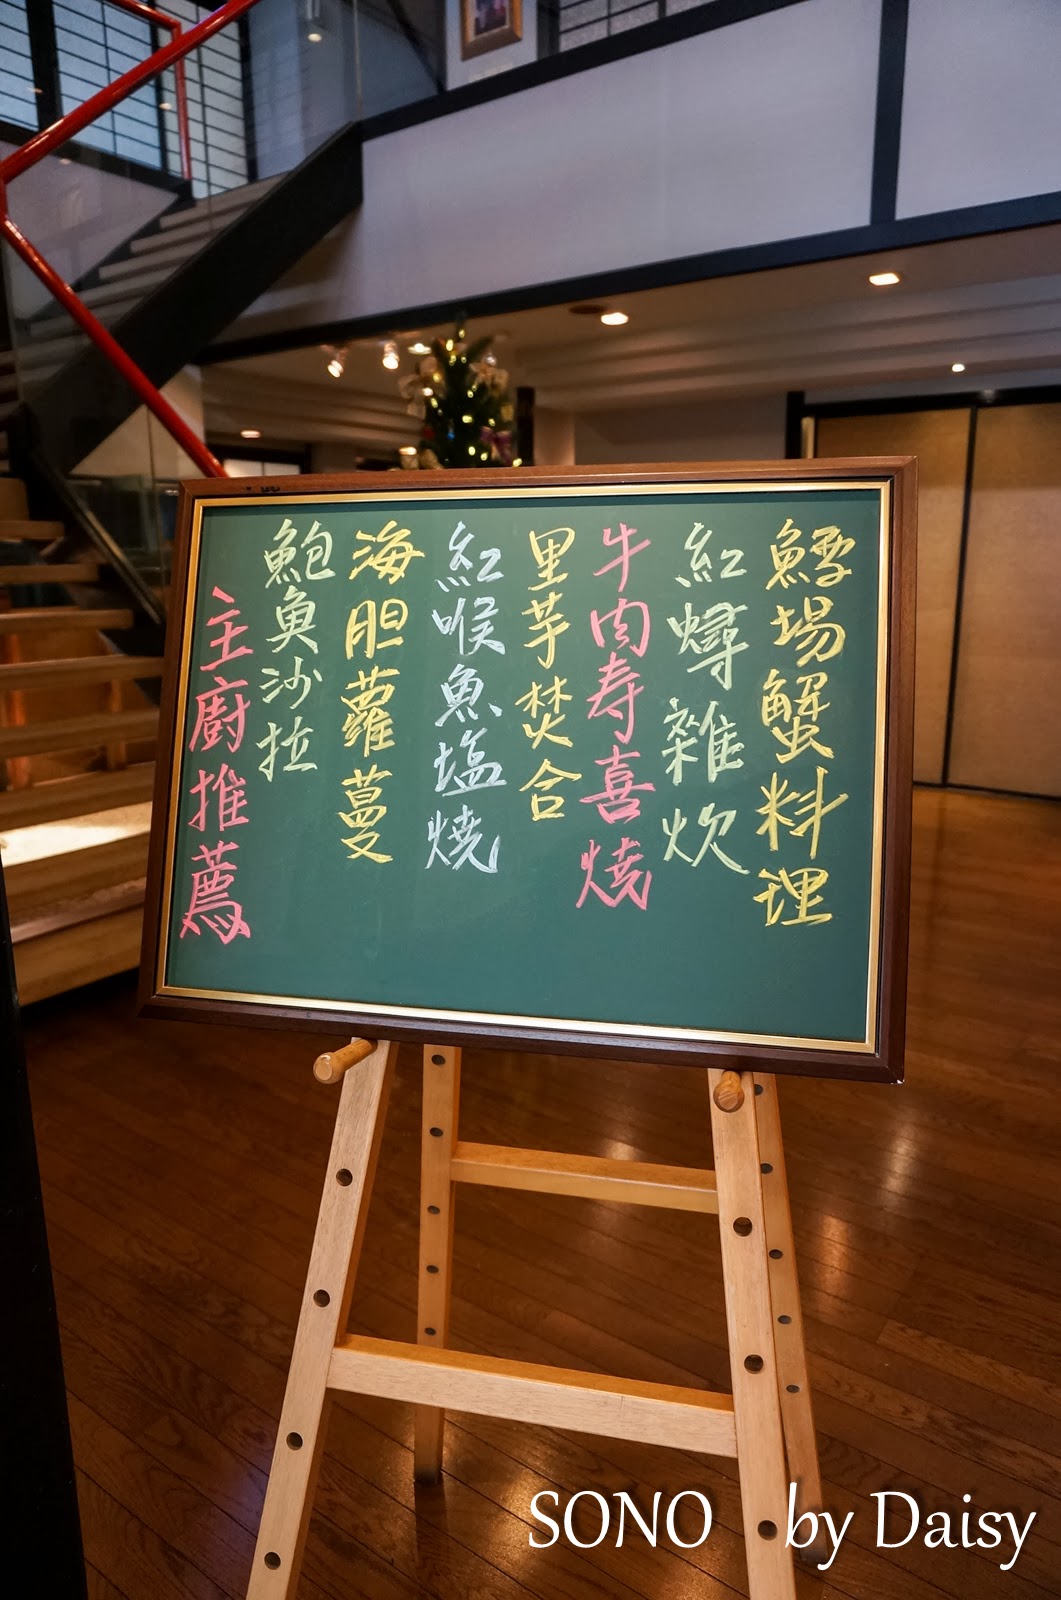 鱈場蟹料理
紅蟳雜炊
牛肉寿喜燒
里芋焚合
紅喉魚塩燒
海胆蘿蔓
鮑魚沙拉
主廚推薦
SONO by Daisy